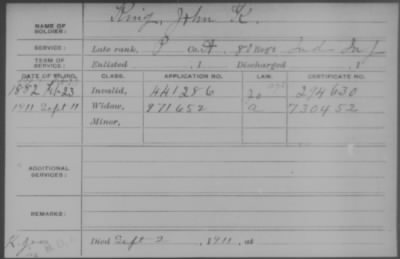 NAME OF SOLDIER: King, John K.
SERVICE: Late rank, P Co. A, 8 Reg't Ind Inf
TERM OF SERVICE: Enlisted , 1 Discharged , 1
DATE OF FILING. CLASS. APPLICATION NO. LAW. CERTIFICATE NO.
1882 Feb 23 Invalid, 441286 274630
1911 Sept 11 Widow, 971652 a 730452
Minor,
ADDITIONAL SERVICES:
REMARKS:
Died Sept 2 , 1911, at